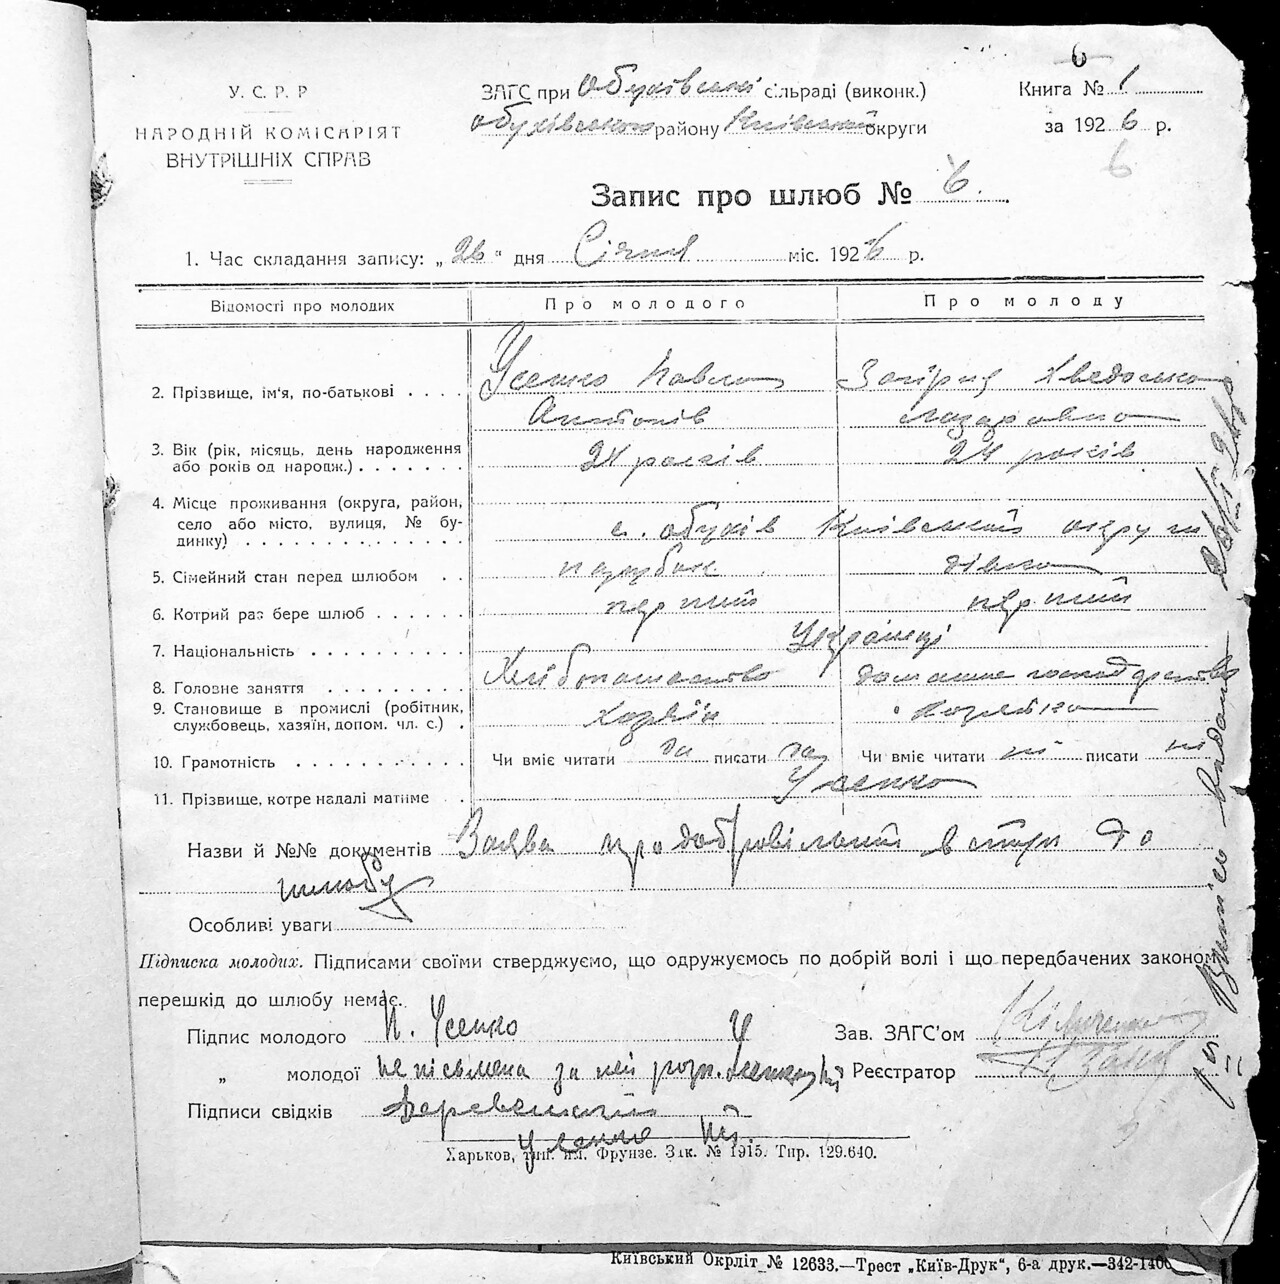 6
У. С. Р. Р
НАРОДНІЙ КОМІСАРІЯТ
ВНУТРІШНІХ СПРАВ
ЗАГС при Обухівські сільраді (виконк.)
Обухівського району Київської округи
Книга № 1
за 1926 р.
6
Запис про шлюб № 6.
1. Час складання запису: „26“ дня Січня міс. 1926 р.
Відомості про молодих Про молодого Про молоду
2. Прізвище, ім'я, по-батькові . . . . Усенко Павло Хведоська
Антонів Лазаровна
3. Вік (рік, місяць, день народження
або років од народж.) . . . . . . . 24 років 24 років
4. Місце проживання (округа, район,
село або місто, вулиця, № бу-
динку) . . . . . . . . . . . . . . с. Обухів Київської округи
5. Сімейний стан перед шлюбом . . парубок дівка
6. Котрий раз бере шлюб . . . . . . перший перший
7. Національність . . . . . . . . . . Українці
8. Головне заняття . . . . . . . . . Хлібопашество домашнє господарство
9. Становище в промислі (робітник,
службовець, хазяїн, допом. чл. с.) . хазяїн хазяйка
10. Грамотність . . . . . . . . . . . Чи вміє читати да писати да Чи вміє читати ні писати ні
11. Прізвище, котре надалі матиме . Усенко
Назви й №№ документів Заява про добровільний вступ до
шлюбу
Особливі уваги
Підписка молодих. Підписами своїми стверджуємо, що одружуємось по добрій волі і що передбачених законом
перешкід до шлюбу немає.
Підпис молодого П. Усенко У Зав. ЗАГС'ом
„ молодої неписьмена за неї розп. Реєстратор
Підписи свідків
Усенко
Харьков, тип. им. Фрунзе. Зак. № 1915. Тир. 129.640.
Київський Окрліт № 12633.—Трест „Київ-Друк“, 6-а друк.—342-1400
Виписъ видана 26/I 26 р